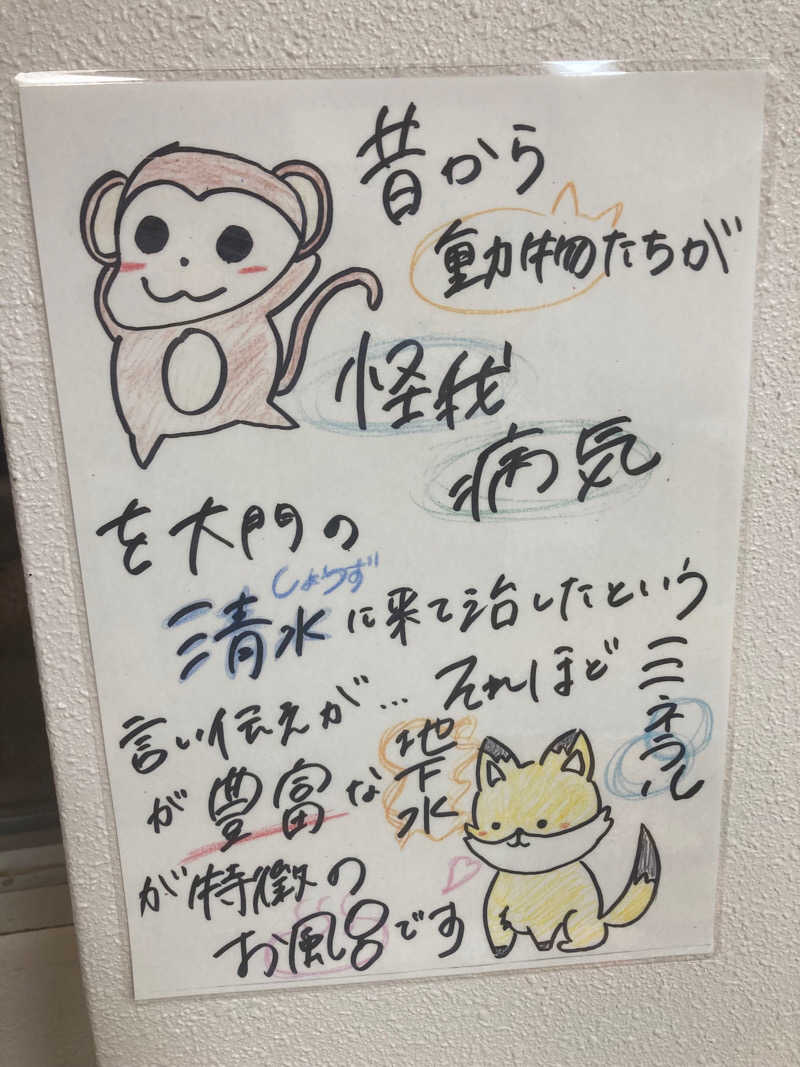 昔から
動物たちが
怪我
病気
を大門の
しょうず
清水に来て治したという
言い伝えが…それほどミネラル
が豊富な地下水
が特徴の
お風呂です